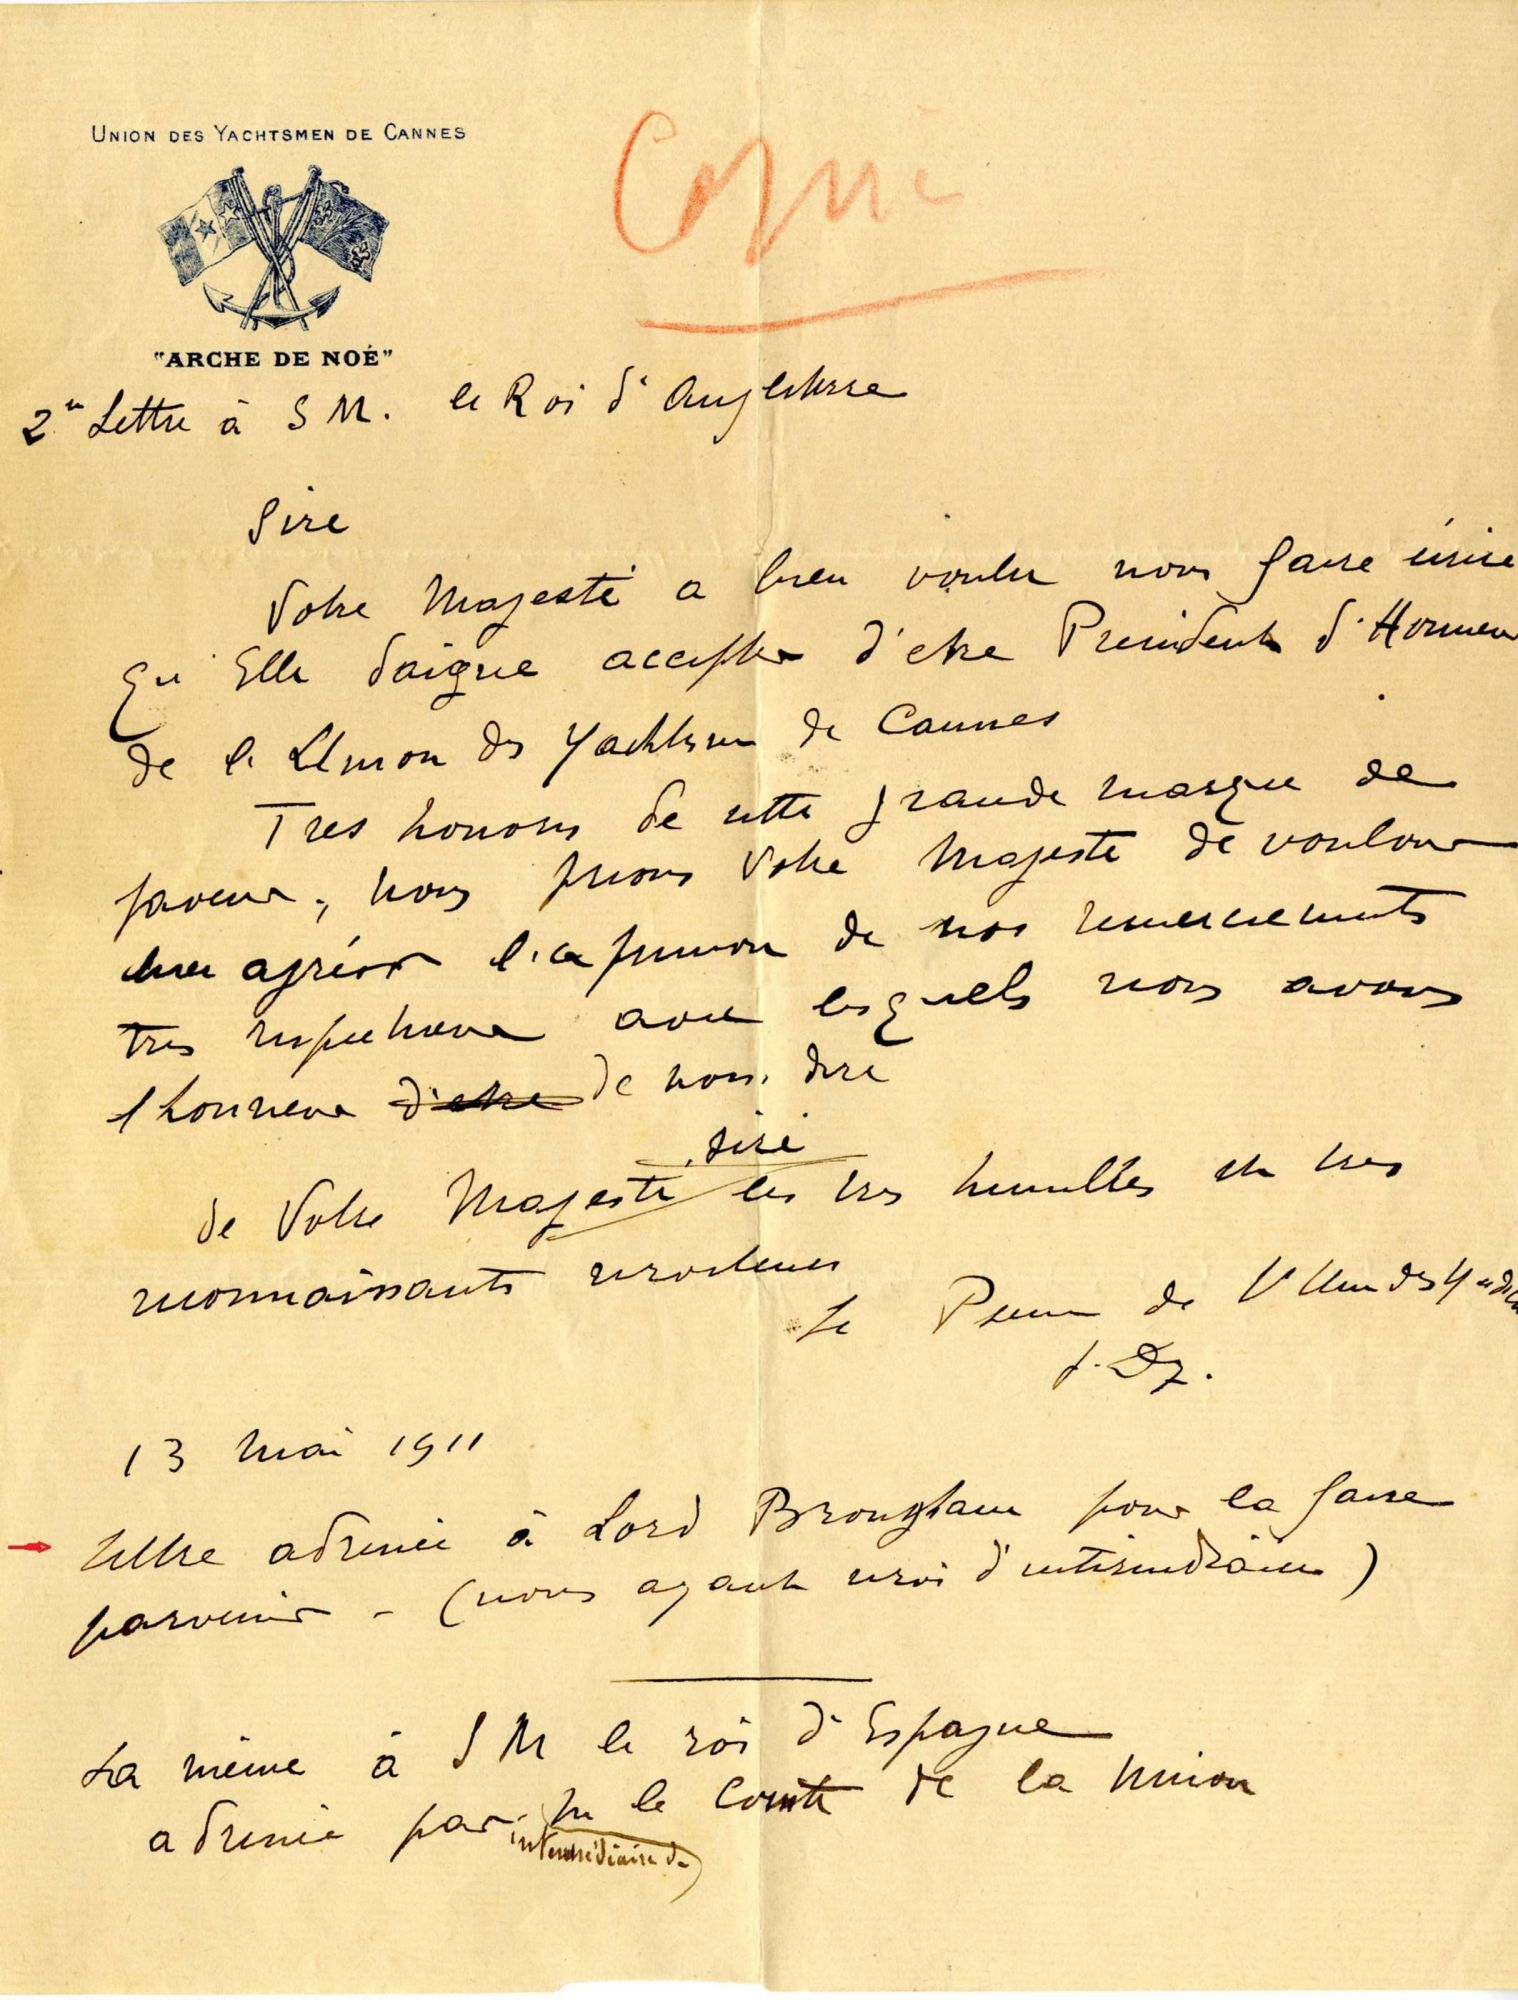 UNION DES YACHTSMEN DE CANNES
"ARCHE DE NOÉ"
Copie
2e Lettre à S M. le Roi d'Angleterre
Sire
Votre Majesté a bien voulu nous faire
qu'Elle daigne accepter d'etre President d'Honneur
de l'Union des Yachtsmen de Cannes
Tres honorés de cette grande marque de
faveur, nous prions Votre Majesté de vouloir
bien agréer l'expression de nos remerciements
tres respectueux avec lesquels nous avons
l'honneur d'etre de nous dire
Sire
de Votre Majesté les tres humbles et tres
reconnaissants serviteurs
Le de l'Union des
13 mai 1911
lettre adressée à Lord Brougham pour la faire
parvenir - (nous ayant servi d'intermédiaire)
La même à S M le roi d'Espagne
adressée par M le Comte de la Union
intermédiaire de